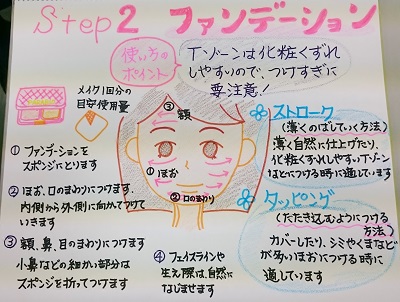 Step2 ファンデーション
使い方の
ポイント
Tゾーンは化粧くずれ
しやすいので、つけすぎに
要注意!
メイク1回分の
目安使用量
③額
①ほお
②口のまわり
① ファンデーションを
スポンジにとります
② ほお、口のまわりにつけます
内側から外側に向かてつけて
いきます
③ 額、鼻、目のまわりにつけます
小鼻などの細かい部分は
スポンジを折ってつけます
④ フェイスラインや
生え際は、自然に
なじませます
ストローク
(薄くのばしていく方法)
薄く自然に仕上げたり、
化粧くずれしやすいTゾーン
などにつける時に適しています
タッピング
(たたき込むようにつける
方法)
カバーしたり、シミやくまなど
が多いほおにつける時に
適しています